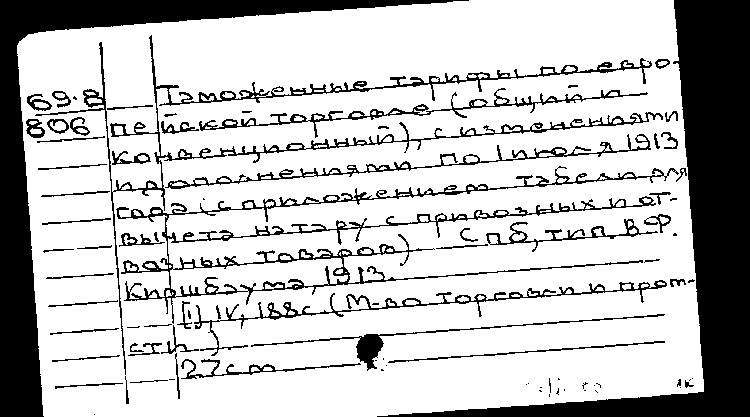 69.8 Таможенные тарифы по евро-
806 пейской торговле (общий и
конвенционный), с изменениями
и дополнениями по 1 июля 1913
года (с приложением табели для
вычета на тару с привозных и от-
возных товаров) Спб, тип. В.Ф.
Киршбаума, 1913.
[1], IV, 188с (М-во торговли и пром-
сти)
27cm